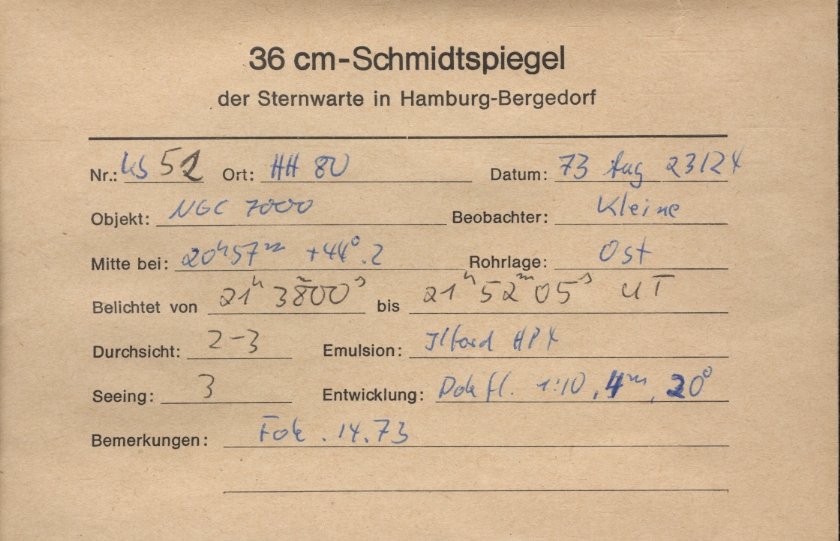 36 cm-Schmidtspiegel
der Sternwarte in Hamburg-Bergedorf
Nr.: KS 52 Ort: HH 80 Datum: 73 Aug 23/24
Objekt: NGC 7000 Beobachter: Kleine
Mitte bei: 20ʰ57ᵐ +44°.2 Rohrlage: Ost
Belichtet von 21ʰ 38ᵐ00ˢ bis 21ʰ 52ᵐ 05ˢ UT
Durchsicht: 2-3 Emulsion: Ilford HP4
Seeing: 3 Entwicklung: Dok fl. 1:10, 4ᵐ, 20°
Bemerkungen: Fok. 14.73